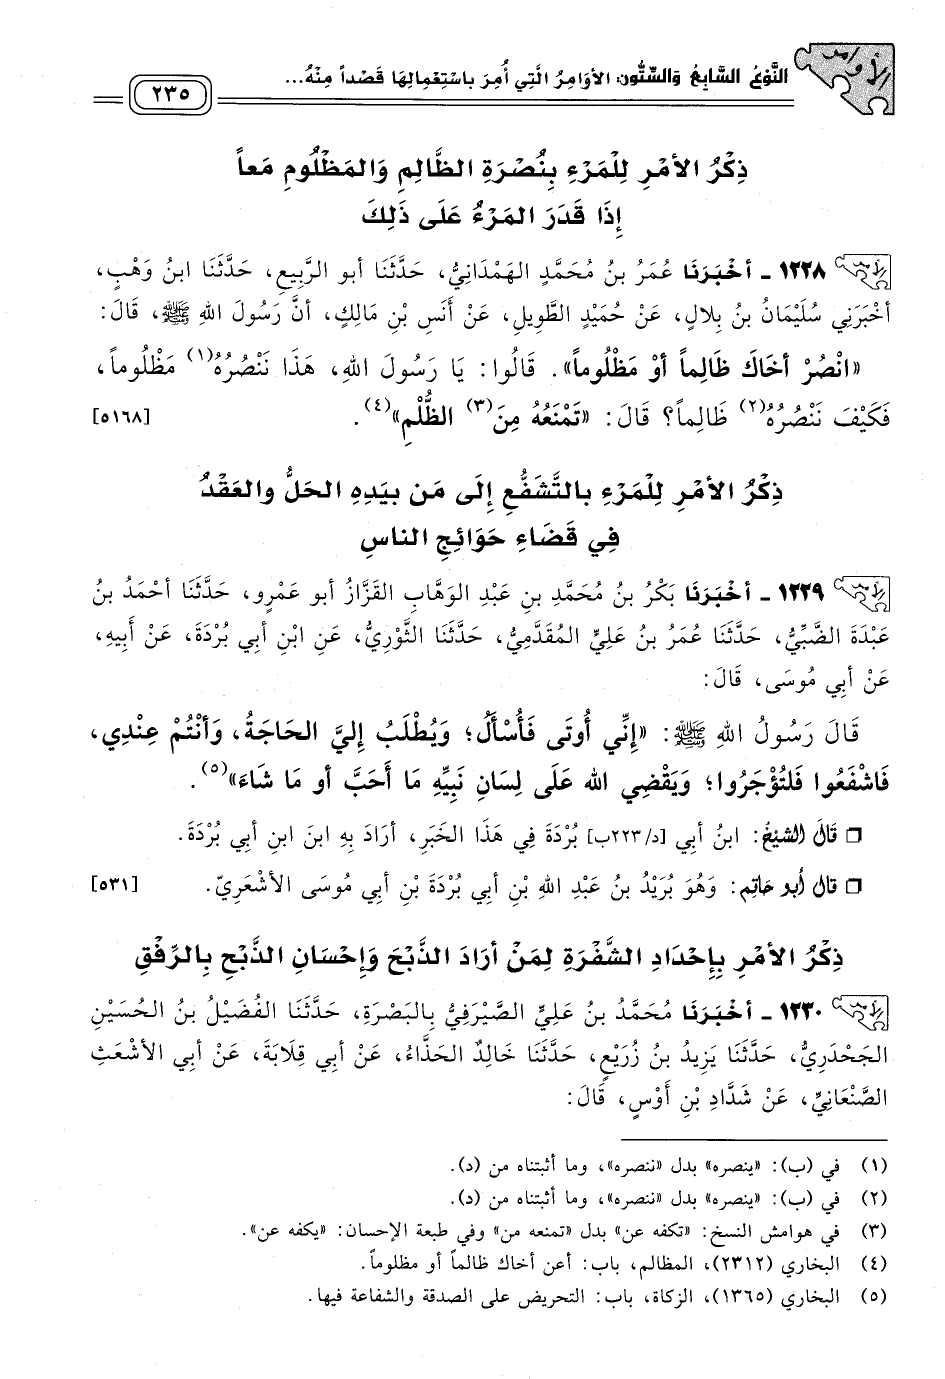 الأوامر
النَّوْعُ السَّابِعُ وَالسِّتُّون: الأوَامِرُ الَّتِي أُمِرَ بِاسْتِعْمِالِهَا قَصْداً مِنْهُ...
٢٣٥
ذِكْرُ الأمْرِ لِلْمَرْءِ بِنُصْرَةِ الظَّالِمِ وَالمَظْلُومِ مَعاً
إِذَا قَدَرَ المَرْءُ عَلَى ذَلِكَ
١٢٢٨ - أخْبَرَنَا عُمَرُ بنُ مُحَمَّدٍ الهَمْدَانِيُّ، حَدَّثَنَا أبو الرَّبِيعِ، حَدَّثَنَا ابنُ وَهْبٍ،
أخْبَرَنِي سُلَيْمَانُ بنُ بِلالٍ، عَنْ حُمَيْدٍ الطَّوِيلِ، عَنْ أنَسِ بْنِ مَالِكٍ، أنَّ رَسُولَ اللهِ ﷺ، قَالَ:
«انْصُرْ أخَاكَ ظَالِماً أوْ مَظْلُوماً». قَالُوا: يَا رَسُولَ اللهِ، هَذَا نَنْصُرُهُ(١) مَظْلُوماً،
فَكَيْفَ نَنْصُرُهُ(٢) ظَالِماً؟ قَالَ: «تَمْنَعُهُ مِنَ(٣) الظُّلْمِ»(٤). [٥١٦٨]
ذِكْرُ الأمْرِ لِلْمَرْءِ بالتَّشَفُّعِ إلَى مَن بيَدِهِ الحَلُّ والعَقْدُ
فِي قَضَاءِ حَوَائِجِ الناسِ
١٢٢٩ - أخْبَرَنَا بَكْرُ بنُ مُحَمَّدِ بنِ عَبْدِ الوَهَّابِ القَزَّازُ أبو عَمْرٍو، حَدَّثَنَا أحْمَدُ بنُ
عَبْدَةَ الضَّبِّيُّ، حَدَّثَنَا عُمَرُ بنُ عَلِيٍّ المُقَدَّمِيُّ، حَدَّثَنَا الثَّوْرِيُّ، عَنِ ابْنِ أبِي بُرْدَةَ، عَنْ أَبِيهِ،
عَنْ أبِي مُوسَى، قَالَ:
قَالَ رَسُولُ اللهِ ﷺ: «إنِّي أُوتَى فَأُسْألُ؛ وَيُطْلَبُ إليَّ الحَاجَةُ، وَأنْتُمْ عِنْدِي،
فَاشْفَعُوا فَلتُؤْجَرُوا؛ وَيَقْضِي الله عَلَى لِسَانِ نَبِيِّهِ مَا أَحَبَّ أو مَا شَاءَ»(٥).
❒ قَالَ الشَّيْخُ: ابنُ أبي [د/٢٢٣ب] بُرْدَةَ فِي هَذَا الخَبَرِ، أرَادَ بِهِ ابنَ ابنِ أبي بُرْدَةَ.
❒ قال أبو حَاتِم: وَهُوَ بُرَيْدُ بنُ عَبْدِ اللهِ بْنِ أبِي بُرْدَةَ بْنِ أبِي مُوسَى الأشْعَرِيّ. [٥٣١]
ذِكْرُ الأمْرِ بِإحْدَادِ الشَّفْرَةِ لِمَنْ أرَادَ الذَّبْحَ وَإحْسَانِ الذَّبْحِ بِالرِّفْقِ
١٢٣٠ - أخْبَرَنَا مُحَمَّدُ بنُ عَلِيٍّ الصَّيْرَفِيُّ بِالبَصْرَةِ، حَدَّثَنَا الفُضَيْلُ بنُ الحُسَيْنِ
الجَحْدَرِيُّ، حَدَّثَنَا يَزِيدُ بنُ زُرَيْعٍ، حَدَّثَنَا خَالِدٌ الحَذَّاءُ، عَنْ أبِي قِلَابَةَ، عَنْ أبِي الأشْعَثِ
الصَّنْعَانِيِّ، عَنْ شَدَّادِ بْنِ أَوْسٍ، قَالَ:
(١) في (ب): «ينصره» بدل «ننصره»، وما أثبتناه من (د).
(٢) في (ب): «ينصره» بدل «ننصره»، وما أثبتناه من (د).
(٣) في هوامش النسخ: «تكفه عن» بدل «تمنعه من» وفي طبعة الإحسان: «يكفه عن».
(٤) البخاري (٢٣١٢)، المظالم، باب: أعن أخاك ظالماً أو مظلوماً.
(٥) البخاري (١٣٦٥)، الزكاة، باب: التحريض على الصدقة والشفاعة فيها.